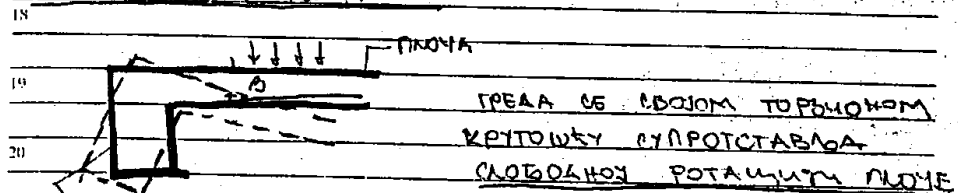 18
ПЛОЧА
19
B
ГРЕДА СЕ СВОЈОМ ТОРЗИОНОМ
20
КРУТОШЋУ СУПРОТСТАВЉА
СЛОБОДНОЈ РОТАЦИЈИ ПЛОЧЕ